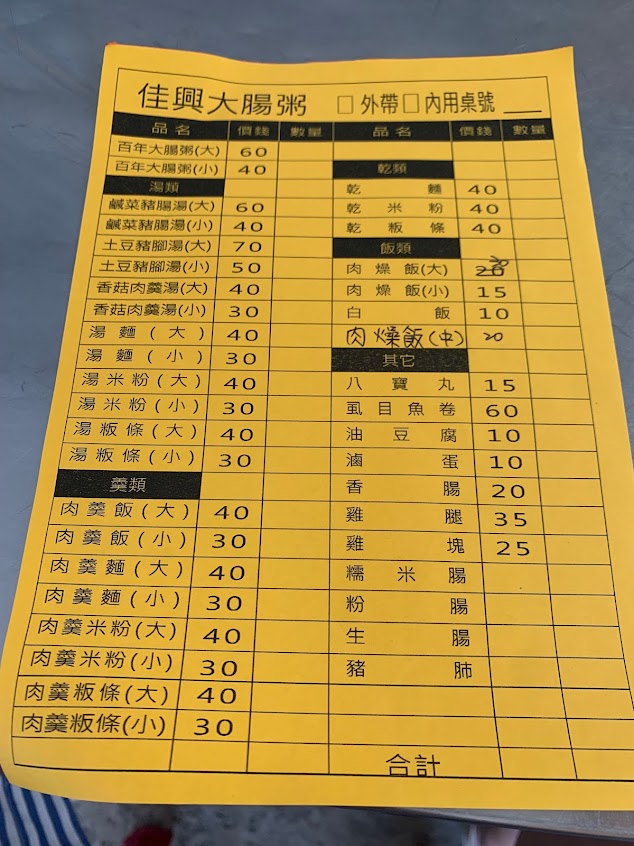 佳興大腸粥 □外帶□內用桌號
品名 價錢 數量
百年大腸粥(大) 60
百年大腸粥(小) 40
湯類
鹹菜豬腸湯(大) 60
鹹菜豬腸湯(小) 40
土豆豬腳湯(大) 70
土豆豬腳湯(小) 50
香菇肉羹湯(大) 40
香菇肉羹湯(小) 30
湯麵(大) 40
湯麵(小) 30
湯米粉(大) 40
湯米粉(小) 30
湯粄條(大) 40
湯粄條(小) 30
羹類
肉羹飯(大) 40
肉羹飯(小) 30
肉羹麵(大) 40
肉羹麵(小) 30
肉羹米粉(大) 40
肉羹米粉(小) 30
肉羹粄條(大) 40
肉羹粄條(小) 30
品名 價錢 數量
乾類
乾麵 40
乾米粉 40
乾粄條 40
飯類
肉燥飯(大) 20 30
肉燥飯(小) 15
白飯 10
肉燥飯(中) 20
其它
八寶丸 15
虱目魚卷 60
油豆腐 10
滷蛋 10
香腸 20
雞腿 35
雞塊 25
糯米腸
粉腸
生腸
豬肺
合計